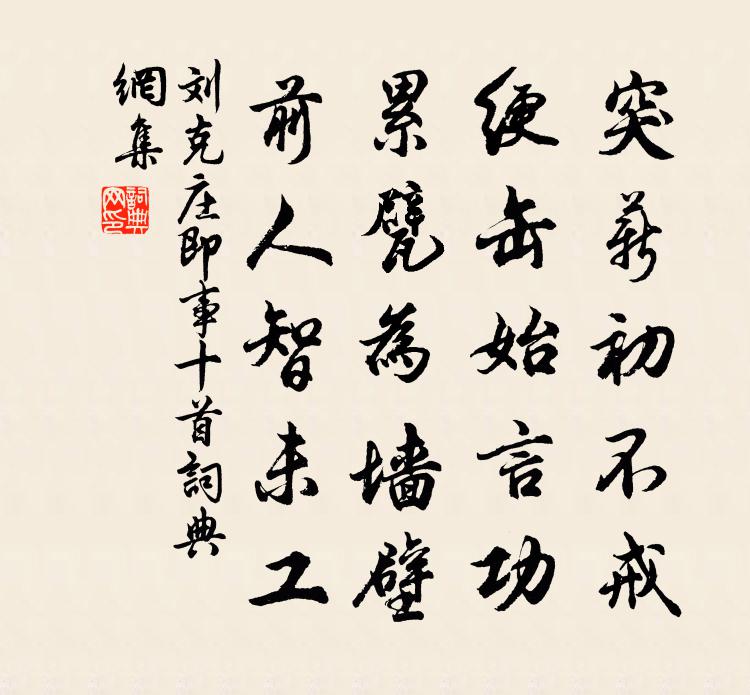 突薪初不戒
绠缶始言功
累甓為墙壁
前人智未工
刘克庄即事十首詞典
網集
詞典
网印